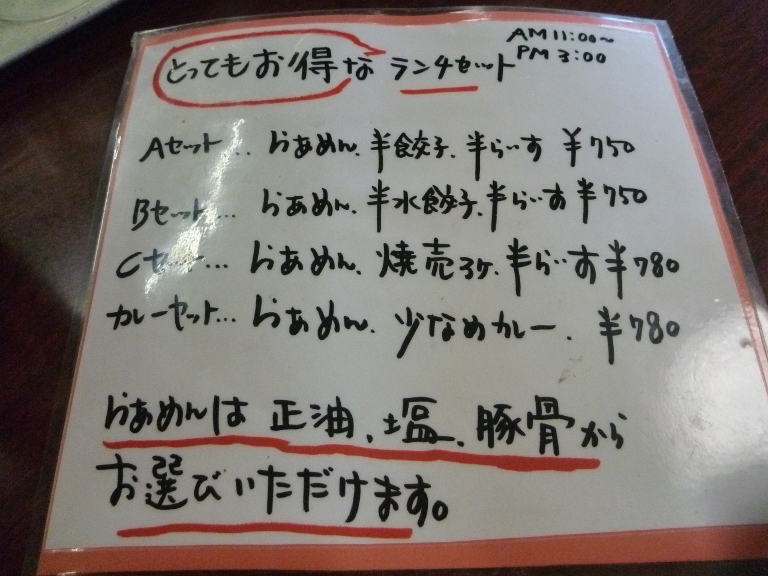 とってもお得な ランチセット
AM 11:00~
PM 3:00
Aセット... らあめん.半餃子.半らいす ¥750
Bセット... らあめん.半水餃子.半らいす ¥750
Cセット... らあめん.焼売3ヶ.半らいす ¥780
カレーセット... らあめん.少なめカレー. ¥780
らあめんは 正油、塩、豚骨から
お選びいただけます。